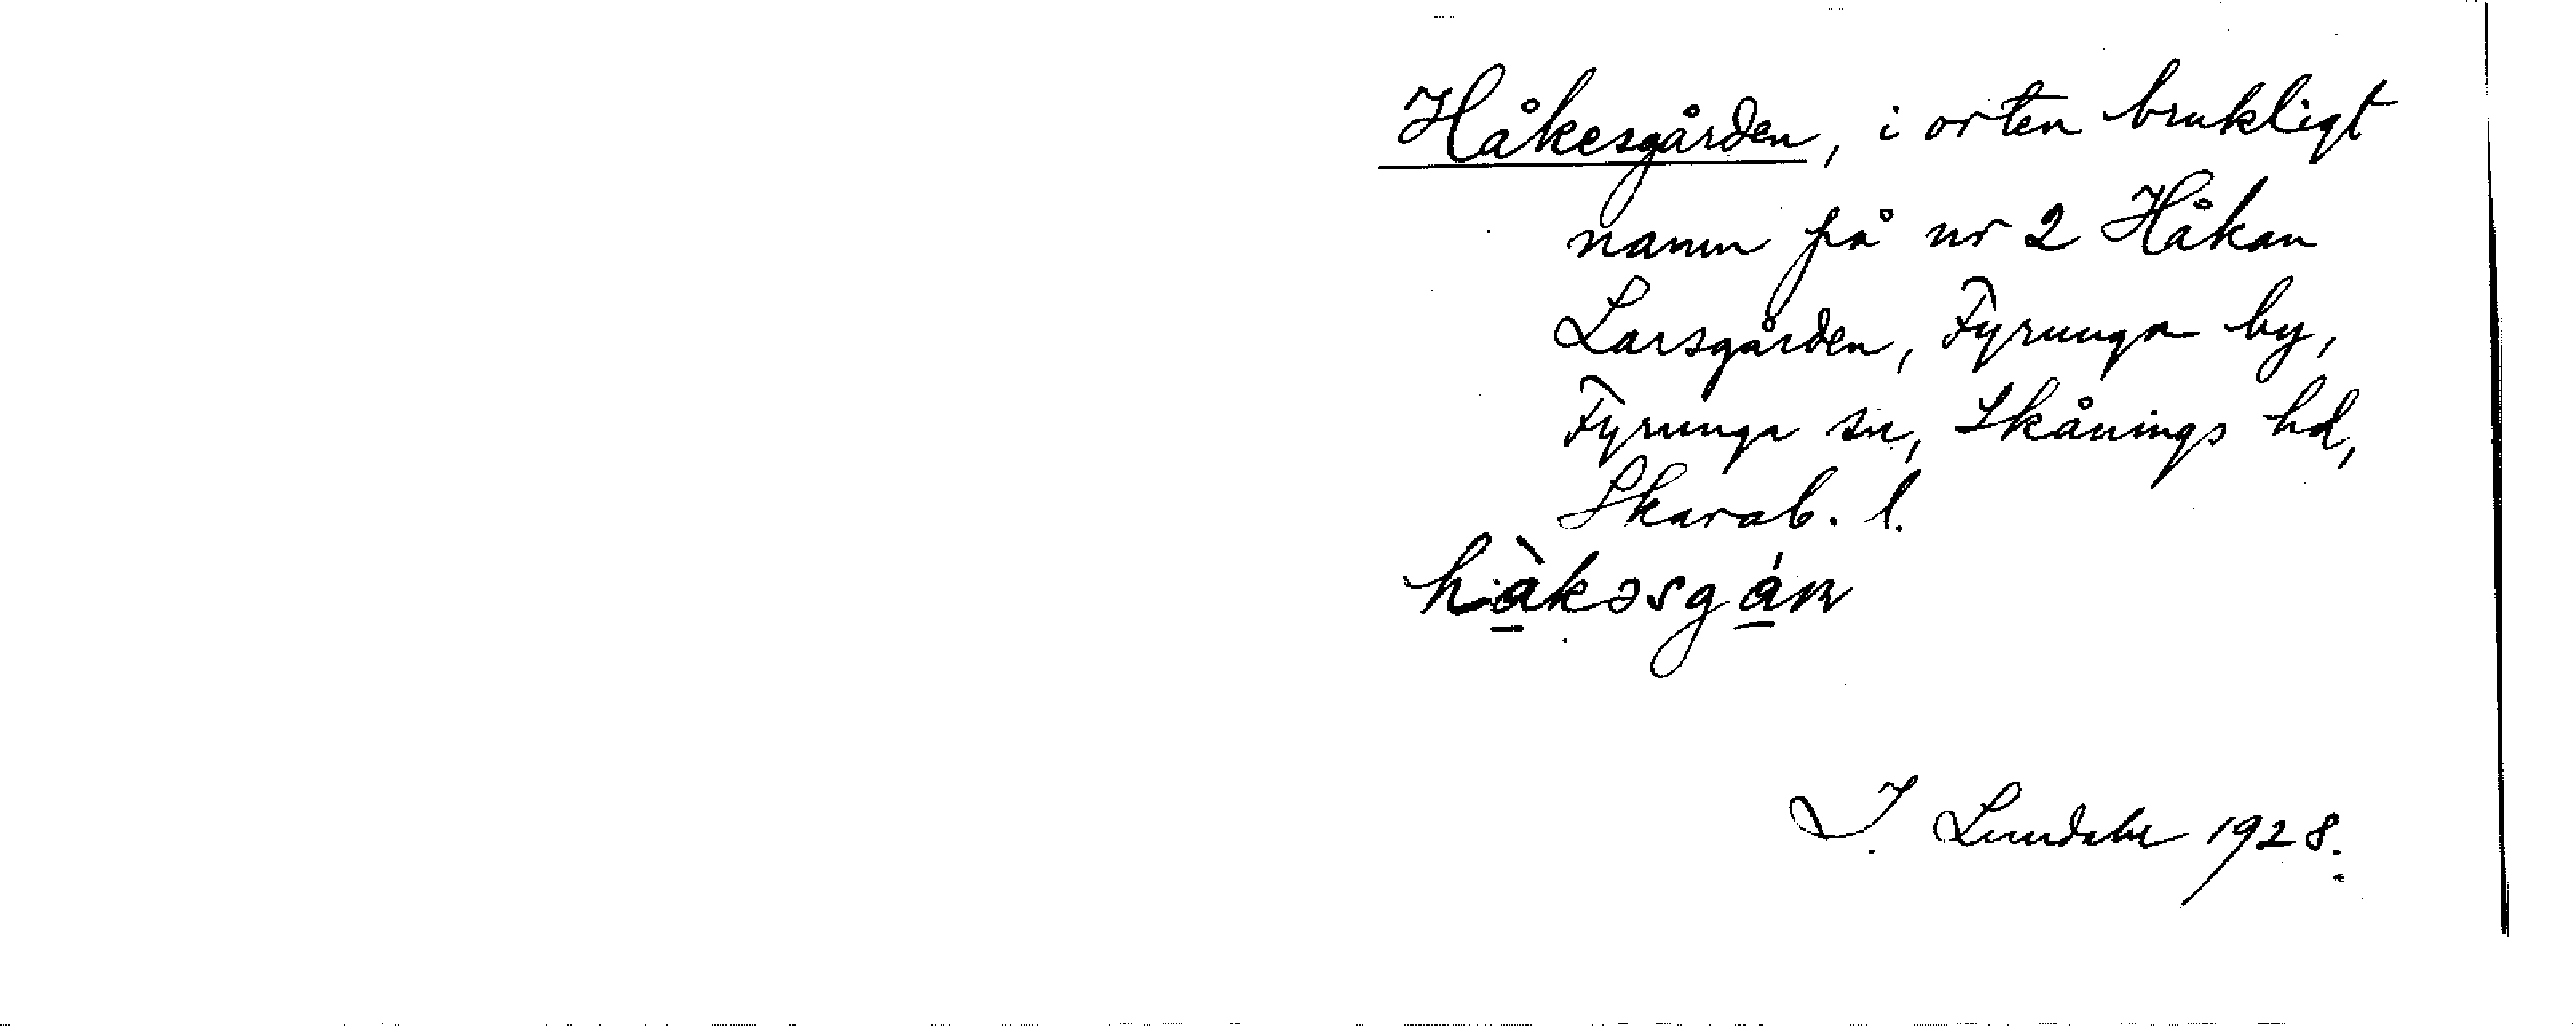 Håkesgården, i orten brukligt
namn på nr 2 Håkan
Larsgården, Fyrunga by,
Fyrunga sn, Skånings hd,
Skarab. l.
hàkəsgán
I. Lundahl 1928.